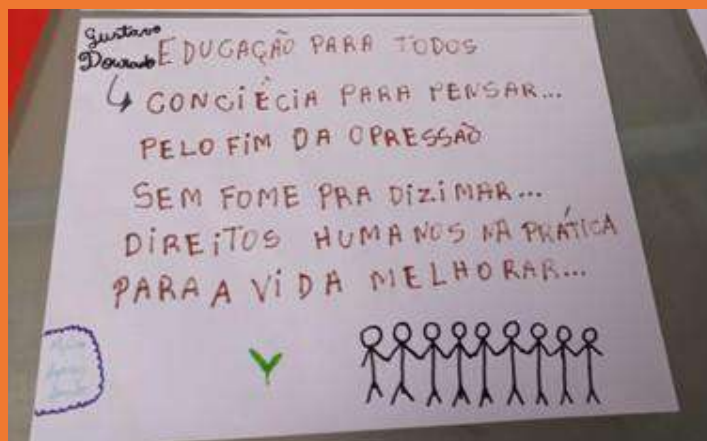 Gustavo
Dourado
EDUCAÇÃO PARA TODOS
CONCIÊCIA PARA PENSAR...
PELO FIM DA OPRESSÃO
SEM FOME PRA DIZIMAR...
DIREITOS HUMANOS NA PRÁTICA
PARA A VIDA MELHORAR...